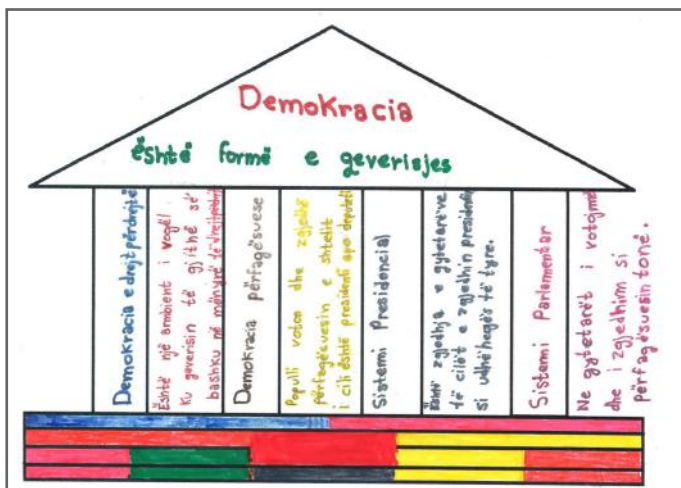 Demokracia
është formë e qeverisjes
Demokracia e drejtpërdrejtë
Është një ambient i vogël
ku qeverisin të gjithë së
bashku në mënyrë të drejtpërdrejtë
Demokracia përfaqësuese
Populli voton dhe zgjedhë
përfaqësuesin e shtetit
i cili është presidenti apo deputeti
Sistemi Presidencial
Është zgjedhja e qytetarëve
të cilët e zgjedhin presidentin
si udhëheqës të tyre.
Sistemi Parlamentar
Ne qytetarët i votojmë
dhe i zgjedhim si
përfaqësuesin tonë.